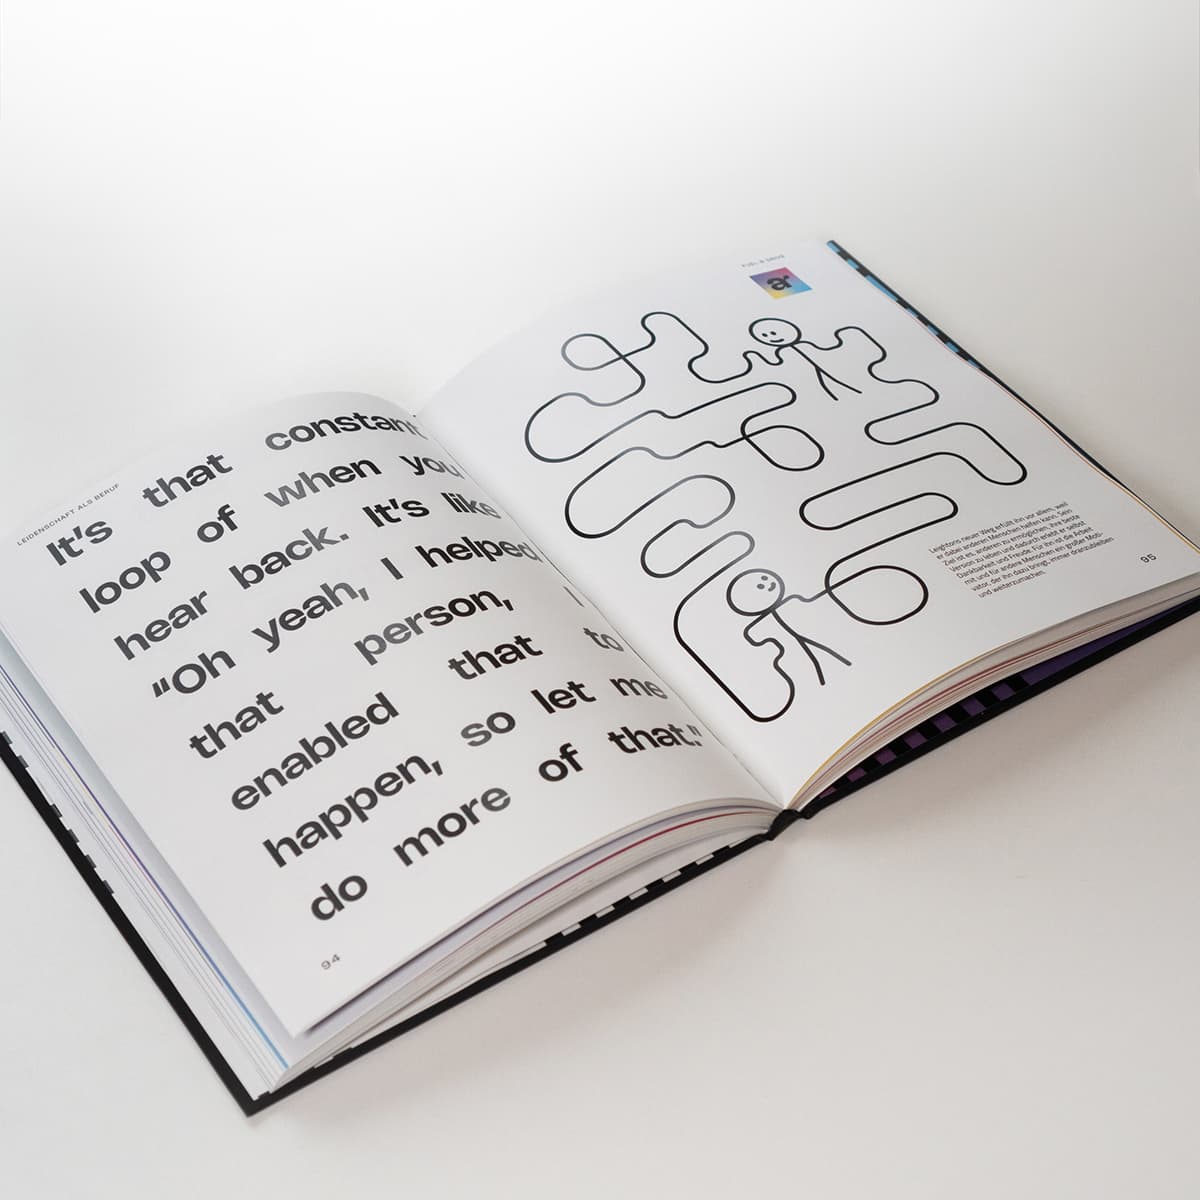 LEIDENSCHAFT ALS BERUF
It's that constant
loop of when you
hear back. It's like
"Oh yeah, I helped
that person, I
enabled that to
happen, so let me
do more of that."
94
ar
Leightons neuer Weg erfüllt ihn vor allem, weil
er dabei anderen Menschen helfen kann. Sein
Ziel ist es, anderen zu ermöglichen, ihre beste
Version zu leben und dadurch erlebt er selbst
Dankbarkeit und Freude. Für ihn ist die Arbeit
mit und für andere Menschen ein großer Moti-
vator, der ihn dazu bringt, immer dranzubleiben
und weiterzumachen.
95